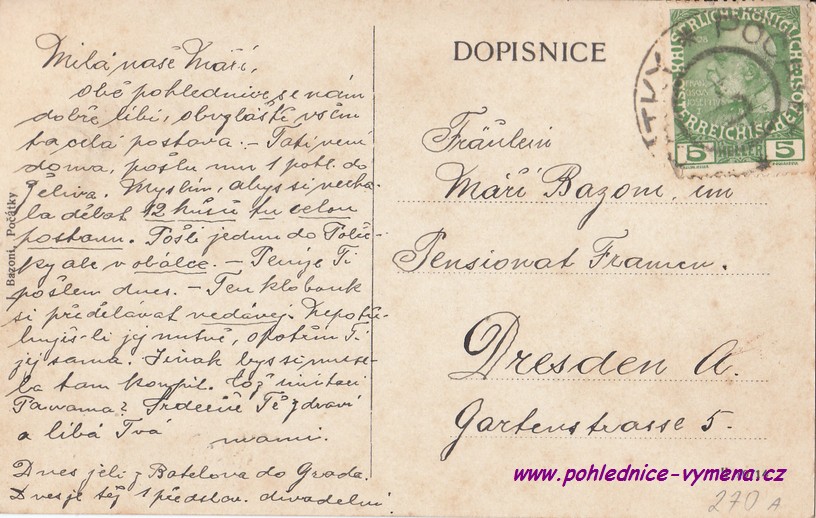 Milá naše Máří,
Obě pohlednice se nám
dobře líbí, obvzláště všem
ta celá postava. - Tati není
doma, pošlu mu 1 pohl. do
Želiva. Myslím, abys si necha-
la dělat 12 kusů tu celou
postavu. Pošli jednu do Polič-
ky ale v obálce. - Peníze Ti
pošlem dnes. - Ten klobouk
si předělávat nedávej. Nepotře-
buješ-li jej nutně, opatřím Ti
jej sama. Jinak bys si muse-
la tam koupit. Což imitaci
Panama? Srdečně Tě zdraví
a líbá Tvá
mami.
Dnes jeli z Batelova do Grada.
Dnes je též 1 představ. divadelní.
Bazoni, Počátky
DOPISNICE
KAISERLICHE KÖNIGLICHE
ÖSTERREICHISCHE
5 HELLER 5
Fräulein
Máří Bazoni, im
Pensionat Framen.
Dresden A.
Gartenstrasse 5.
www.pohlednice-vymena.cz
270 A